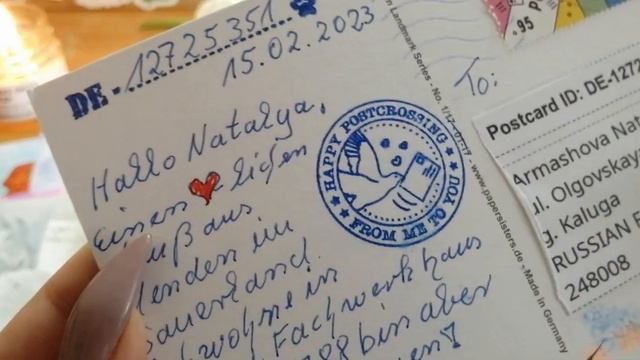 DE-12725351
15.02.2023
Hallo Natalya,
Einen ♥ lichen
uß aus
enden im
auerland.
wohne in
Fachwerkhaus
bin aber
HAPPY POSTCROSSING
FROM ME TO YOU
n Landmark Series - No. 1/12-0117 - www.papersisters.de - Made in Germany
95
To:
Postcard ID: DE-1272
Armashova Nat
ul. Olgovskaya
g. Kaluga
RUSSIAN F
248008